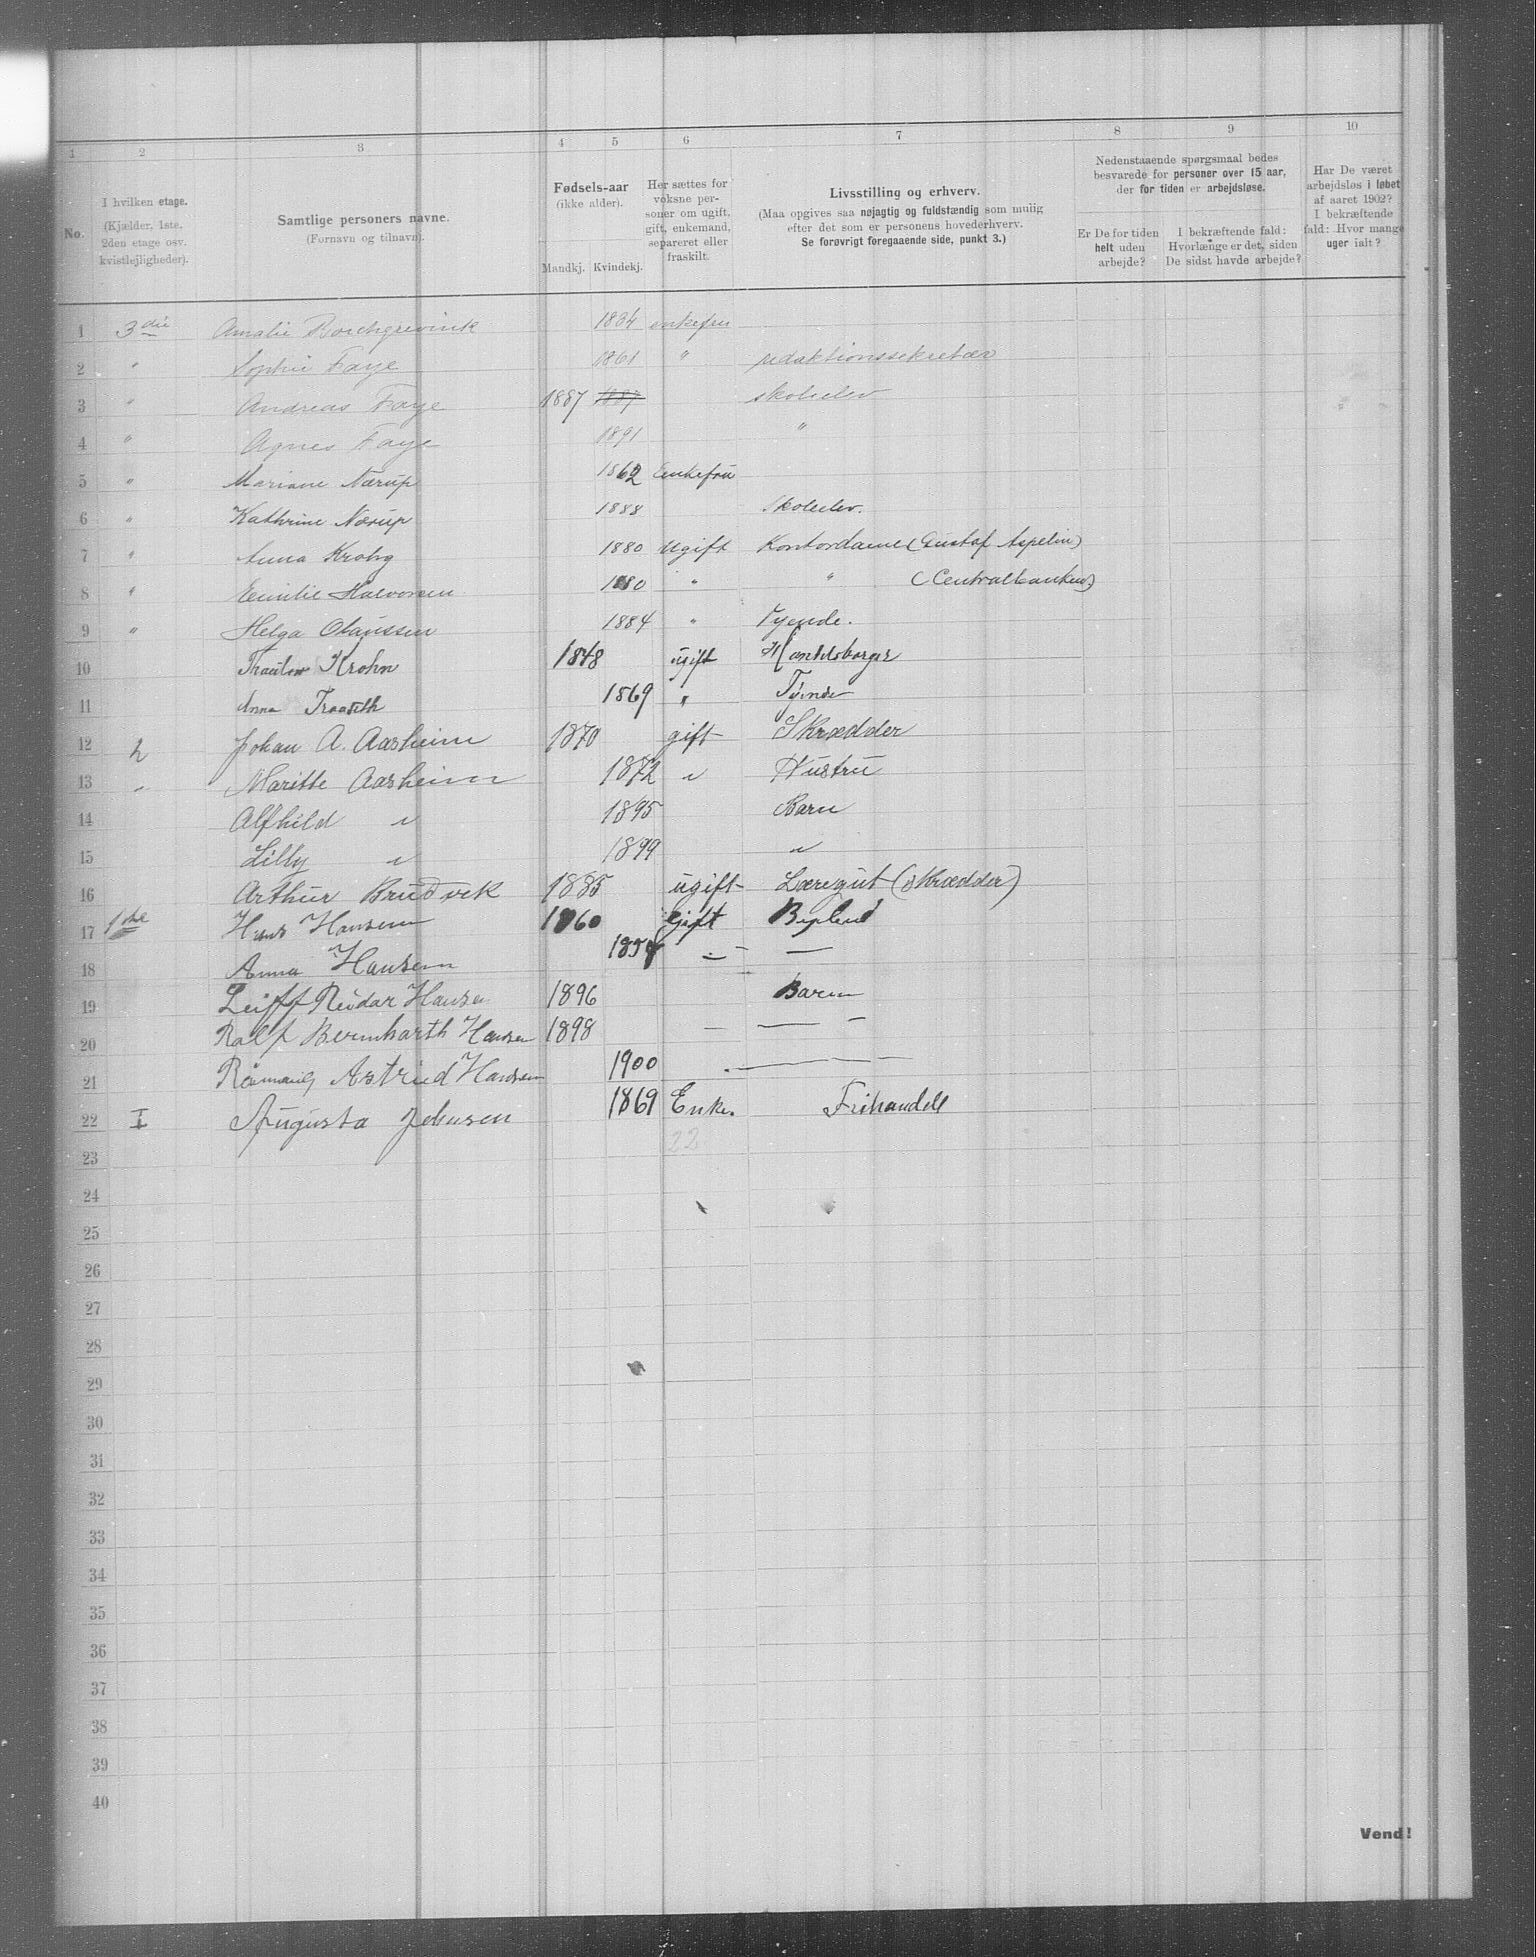 1 2 3 4 5 6 7 8 9 10
No.
I hvilken etage.
(Kjælder, 1ste.
2den etage osv.
kvistlejligheder).
Samtlige personers navne.
(Fornavn og tilnavn).
Fødsels-aar
(ikke alder).
Mandkj. Kvindekj.
Her sættes for
voksne per-
soner om ugift,
gift, enkemand,
separeret eller
fraskilt.
Livsstilling og erhverv.
(Maa opgives saa nøjagtig og fuldstændig som mulig
efter det som er personens hovederhverv.
Se forøvrigt foregaaende side, punkt 3.)
Nedenstaaende spørgsmaal bedes
besvarede for personer over 15 aar,
der for tiden er arbejdsløse.
Er De for tiden
helt uden
arbejde?
I bekræftende fald:
Hvorlænge er det, siden
De sidst havde arbejde?
Har De været
arbejdsløs i løbet
af aaret 1902?
I bekræftende
fald: Hvor mange
uger ialt?
1 3die Amalie Borchgrevink 1834 enkefru
2 " Sophie Faye 1861 " redaktionssekretær
3 " Andreas Faye 1887 1887 skoleelev
4 " Agnes Faye 1891 "
5 " Mariane Nærup 1862 Enkefru
6 " Kathrine Nærup 1888 Skoleelev.
7 " Anna Krohg 1880 Ugift Kontordame (Gustaf Aspelin)
8 " Emilie Halvorsen 1880 " " (Centralbanken)
9 " Helga Olaussen 1884 " Tyende.
10 Krohn 1848 ugift Handelsborger
11 Anna Traaseth 1869 " Tyende
12 2 Johan A. Aasheim 1870 gift Skrædder
13 " Maritte Aasheim 1872 " Hustru
14 Alfhild " 1895 Barn
15 Lilly " 1899 "
16 Arthur Brudvik 1885 ugift Læregut (Skrædder)
17 1ste Hans Hansen 1860 Gift Bybud
18 Anna Hansen - —
19 Leiff Reidar Hansen 1896 Barn
20 Ralf Bernharth Hansen 1898 — — -
21 Astrid Hansen 1900 — — —
22 I Augusta Johnsen 1869 Enke. Frihandell
23 22
24
25
26
27
28
29
30
31
32
33
34
35
36
37
38
39
40
Vend!